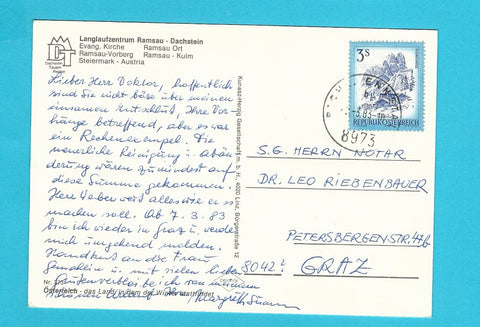 Langlaufzentrum Ramsau - Dachstein
Evang. Kirche Ramsau Ort
Ramsau-Vorberg Ramsau - Kulm
Steiermark - Austria
Dachstein
Tauern
Region
Lieber Herr Doktor, hoffentlich
sind Sie nicht böse über meinen
einsamen Entschluß, Ihre Vor
hänge betreffend, aber es war
ein Rechenexempel. Die
neuerliche Reinigung u. abän
derung wären zumindest auf
diese Summe gekommen.
Herr Weber wird alles wie er es
machen soll. Ab 7. 3. 83
bin ich wieder in Graz u. werde
mich umgehend melden.
Handkuß an die Frau
Gemahlin u. mit vielen lieben
verbleibe ich
Ihre Margreth
Österreich - das Land in dem der Winter stattfindet
Kunstverlag Hospiz Gesellschaft m. b. H., 4020 Linz, 12
3 S
REPUBLIK ÖSTERREICH
83
8973
S.G. HERRN NOTAR
DR. LEO RIEBENBAUER
PETERSBERGENSTR. 47b
8042 GRAZ